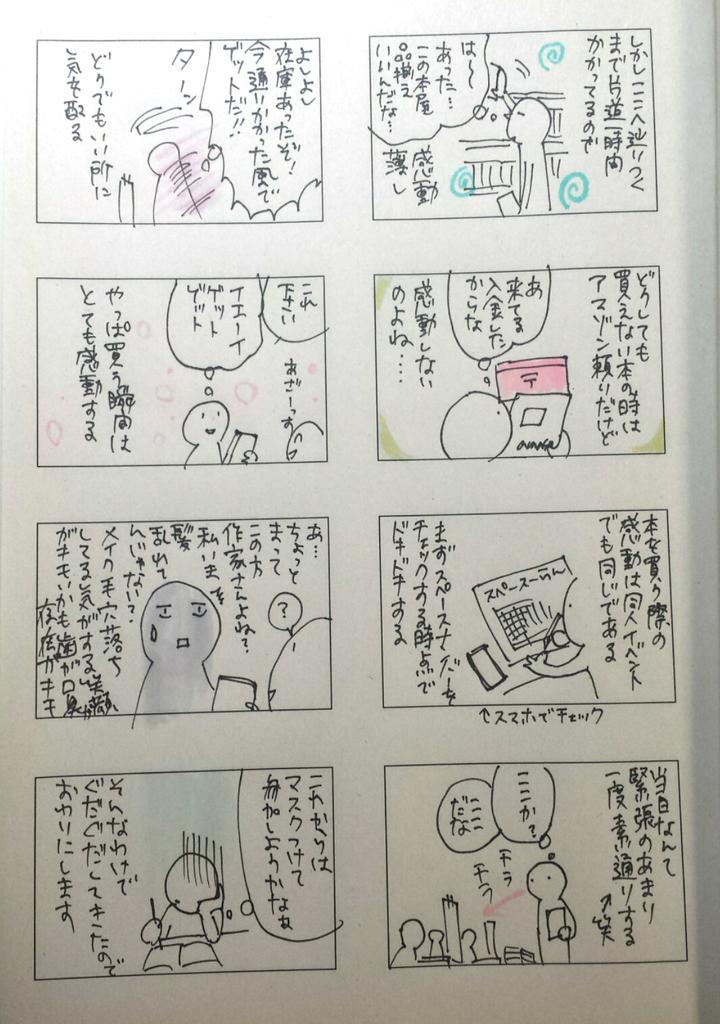 しかしここへ辿りつく
まで片道一時間
かかってるので
は〜
あった…
この本屋
品揃え
いいんだな…
感動
薄し
どうしても
買えない本の時は
アマゾン頼りだけど
あ
来てる
入金した
からな
感動しない
のよね…
本を買う際の
感動は同人イベント
でも同じである
スペース一らん
まずスペースナンバーを
チェックする時点で
ドキドキする
↑スマホでチェック
当日なんて
緊張のあまり
一度素通りする
笑
ここか?
ここ
だな
チラ
チラ
よしよし
在庫あったぞ!
今通りかかった風で
ゲットだ!!
ターン
どうでもいい所に
気を配る
これ
下さい
イエーイ
ゲット
ゲット
あざーっす
やっぱ買う瞬間は
とても感動する
あ…
ちょっと
まって
この方
作家さんよね?
私いま
髪
乱れて
んじゃない?
メイク毛穴落ち
してる気がする笑顔
がキモいかも歯が口臭が
?
これからは
マスクつけて
参加しようかなぁ
そんなわけで
ぐだぐだしてきたので
おわりにします